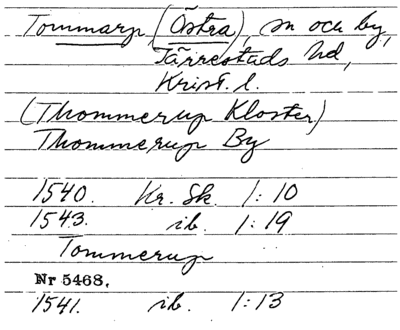 Tommarp (Östra), sn och by,
Järrestads hd,
Krist. l.
(Thommerup Kloster)
Thommerup By
1540. Kr. Sk. 1:10
1543. ib. 1:19
Tommerup
Nr 5468.
1541. ib. 1:13